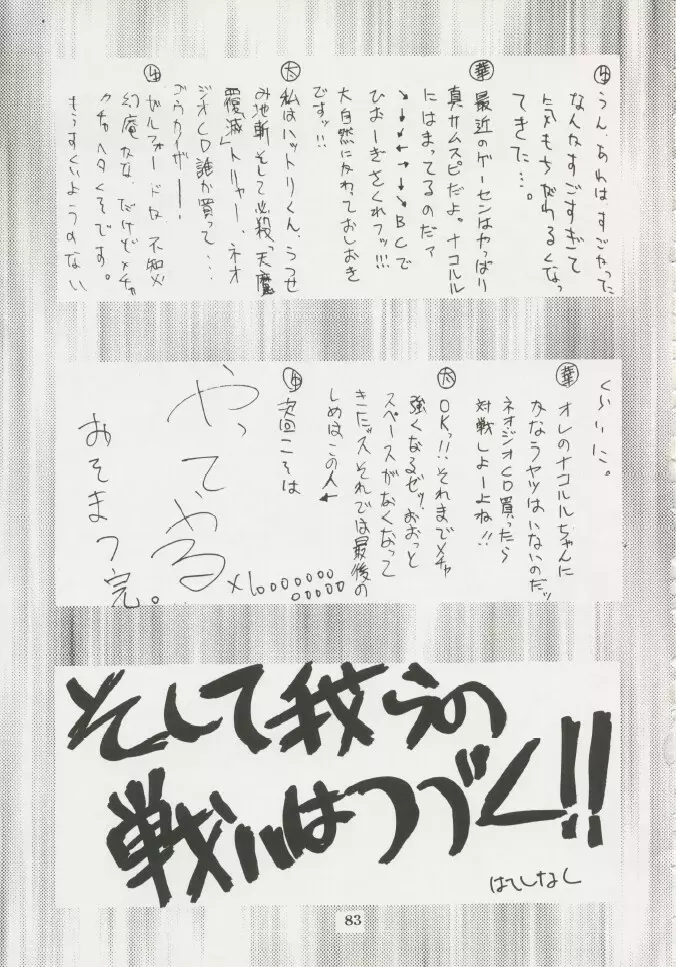 うん、あれは、すごかった
なんかすごすぎて
気もちがわるくなっ
てきた…。
華 最近のゲーセンはやっぱり
真サムスピだよ。ナコルル
にはまってるのだァ
↘↓↙←→↓↘BCで
ひおーぎさくれフッ!!!
大自然にかわっておしおき
ですッ!!
大 私はハットリくん、うつせ
み地斬そして必殺「天魔
覆滅」トリャー、ネオ
ジオCD誰か買って…
ゴウカイザー——!
ガルフォードな 不知火
幻庵な な、だけどメチャ
クチャヘタくそです。
もうすくいようのない
くらいに。
華 オレのナコルルちゃんに
かなうヤツはいないのだッ
ネオジオCD買ったら
対戦しよーよね!!
大 OKっ!!それまでメチャ
強くなるゼッ、おおっと
スペースがなくなって
きたッスそれでは最後の
しめはこの人↓
次回こそは
やってやる
×1000000000000
おそまつ完。
そして我らの
戦いはつづく!!
はてしなし
83